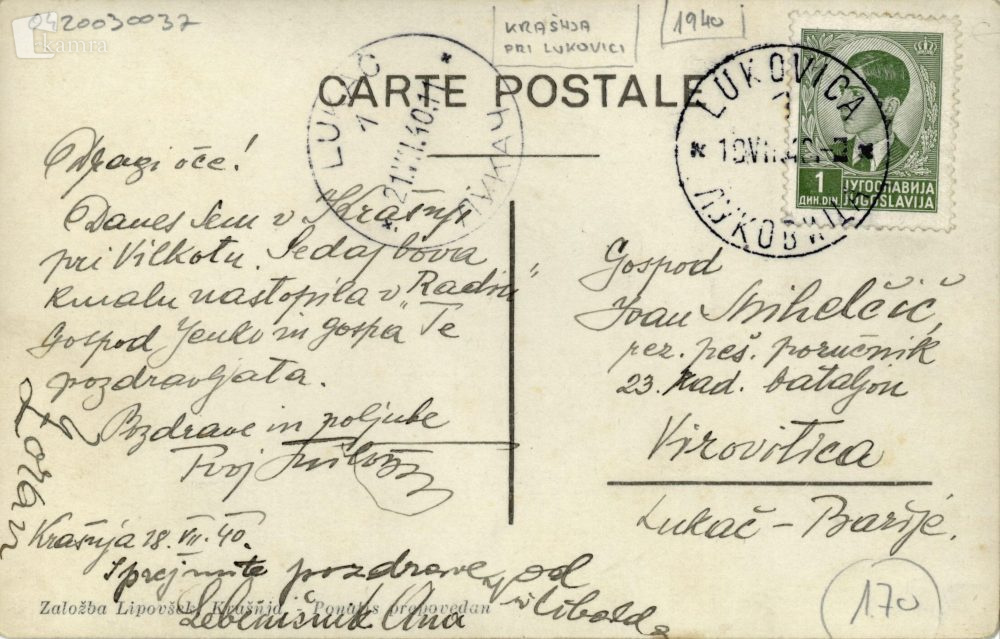 0420030037
kamra
KRAŠNJA
PRI LUKOVICI
1940
CARTE POSTALE
LUKAČ
1
21.VII.40.11
ЛУКАЧ
LUKOVICA
ЛУКОВИЦА
1
ДИН. DIN
ЈУГОСЛАВИЈА
JUGOSLAVIJA
Dragi oče!
Danes sem v Krašnji
pri Vilkotu. Sedaj bova
kmalu nastopila v „Radiu"
Gospod Jenko in gospa Te
pozdravljata.
Pozdrave in poljube
Tvoj
Zoran
Krašnja 18. VII. 40.
Sprejmite pozdrave od
Ana
Založba Lipovšek, Krašnja - Ponatis prepovedan
Gospod
Ivan Mihelčič,
rez. peš. poručnik
23. rad. bataljon
Virovitica
Lukač - Barije.
170